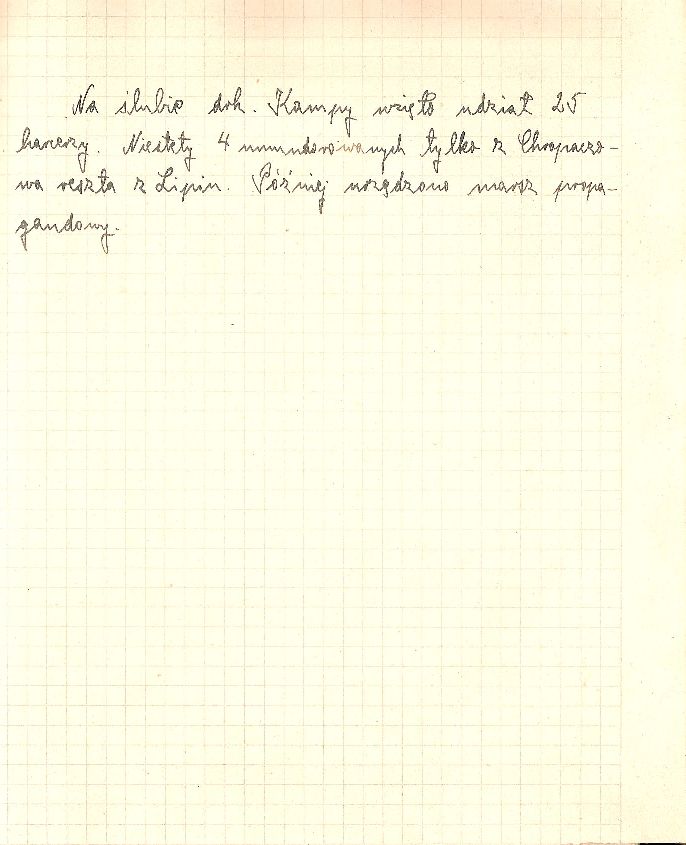 Na ślubie drh. Kampy wzięło udział 25
harcerzy. Niestety 4 umundurowanych tylko z Chropaczo-
wa reszta z Lipin. Później urządzono marsz propa-
gandowy.